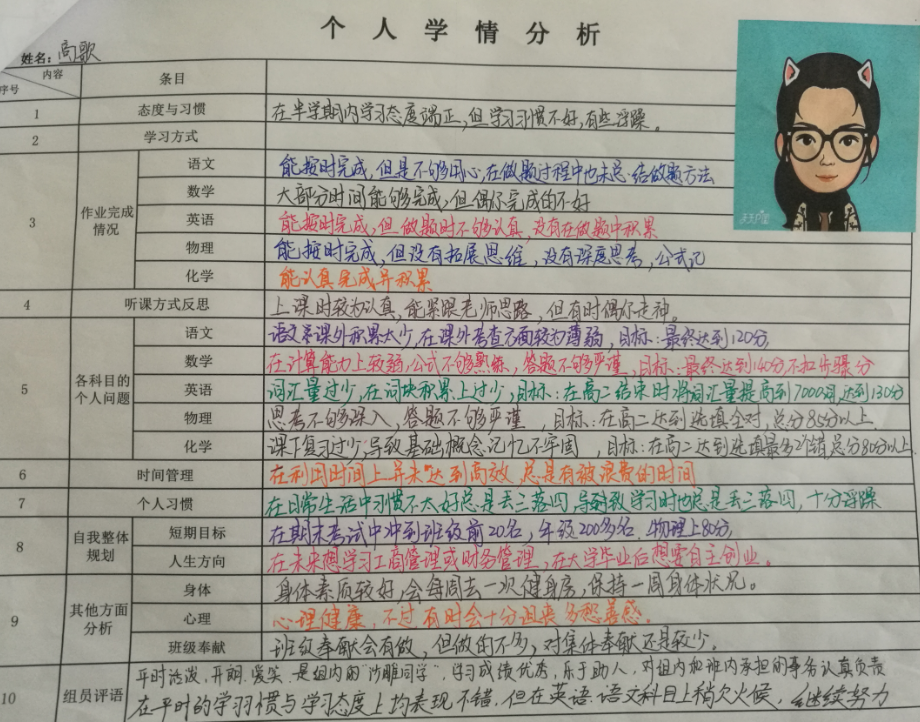 个人学情分析
姓名：高歌
内容
序号
条目
1 态度与习惯 在半学期内学习态度端正，但学习习惯不好，有些浮躁。
2 学习方式
3 作业完成情况
语文 能按时完成，但是不够用心，在做题过程中也未总结做题方法
数学 大部分时间能够完成，但偶尔完成的不好
英语 能按时完成，但做题时不够认真，没有在做题中积累
物理 能按时完成，但没有拓展思维，没有深度思考，公式记
化学 能认真完成并积累
4 听课方式反思 上课时较为认真，能紧跟老师思路，但有时偶尔走神。
5 各科目的个人问题
语文 语文课外积累太少，在课外考查方面较为薄弱，目标：最终达到120分，
数学 在计算能力上较弱，公式不够熟练，答题不够严谨，目标：最终达到140分不扣步骤分
英语 词汇量过少，在词块积累上过少，目标：在高二结束时将词汇量提高到7000词，达到130分
物理 思考不够深入，答题不够严谨，目标：在高二达到选填全对，总分85分以上
化学 课下复习过少，导致基础概念记忆不牢固，目标：在高二达到选填最多1错，总分80分以上
6 时间管理 在利用时间上并未达到高效，总是有被浪费的时间
7 个人习惯 在日常生活中习惯不太好总是丢三落四，导致学习时也总是丢三落四，十分浮躁
8 自我整体规划
短期目标 在期末考试中冲到班级前20名，年级200多名，物理上80分，
人生方向 在未来想学习工商管理或财务管理，在大学毕业后想要自主创业。
9 其他方面分析
身体 身体素质较好，会每周去一次健身房，保持一周身体状况。
心理 心理健康，不过有时会十分沮丧多愁善感。
班级奉献 班级奉献会有做，但做的不多，对集体奉献还是较少。
10 组员评语 平时活泼、开朗、爱笑，是组内的“沙雕同学”，学习成绩优秀，乐于助人，对组内和班内承担的事务认真负责
在平时的学习习惯与学习态度上均表现不错，但在英语、语文科目上稍欠火候，继续努力